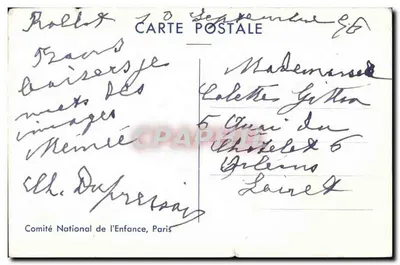 Rollot 10 Septembre
CARTE POSTALE
baisers je
mets des
images
Mémée
Ch. Dupressoir
Mademoiselle
Colette Gitton
5 Quai du
Chatelet 6
Orléans
Loiret
CPARAMA
Comité National de l'Enfance, Paris